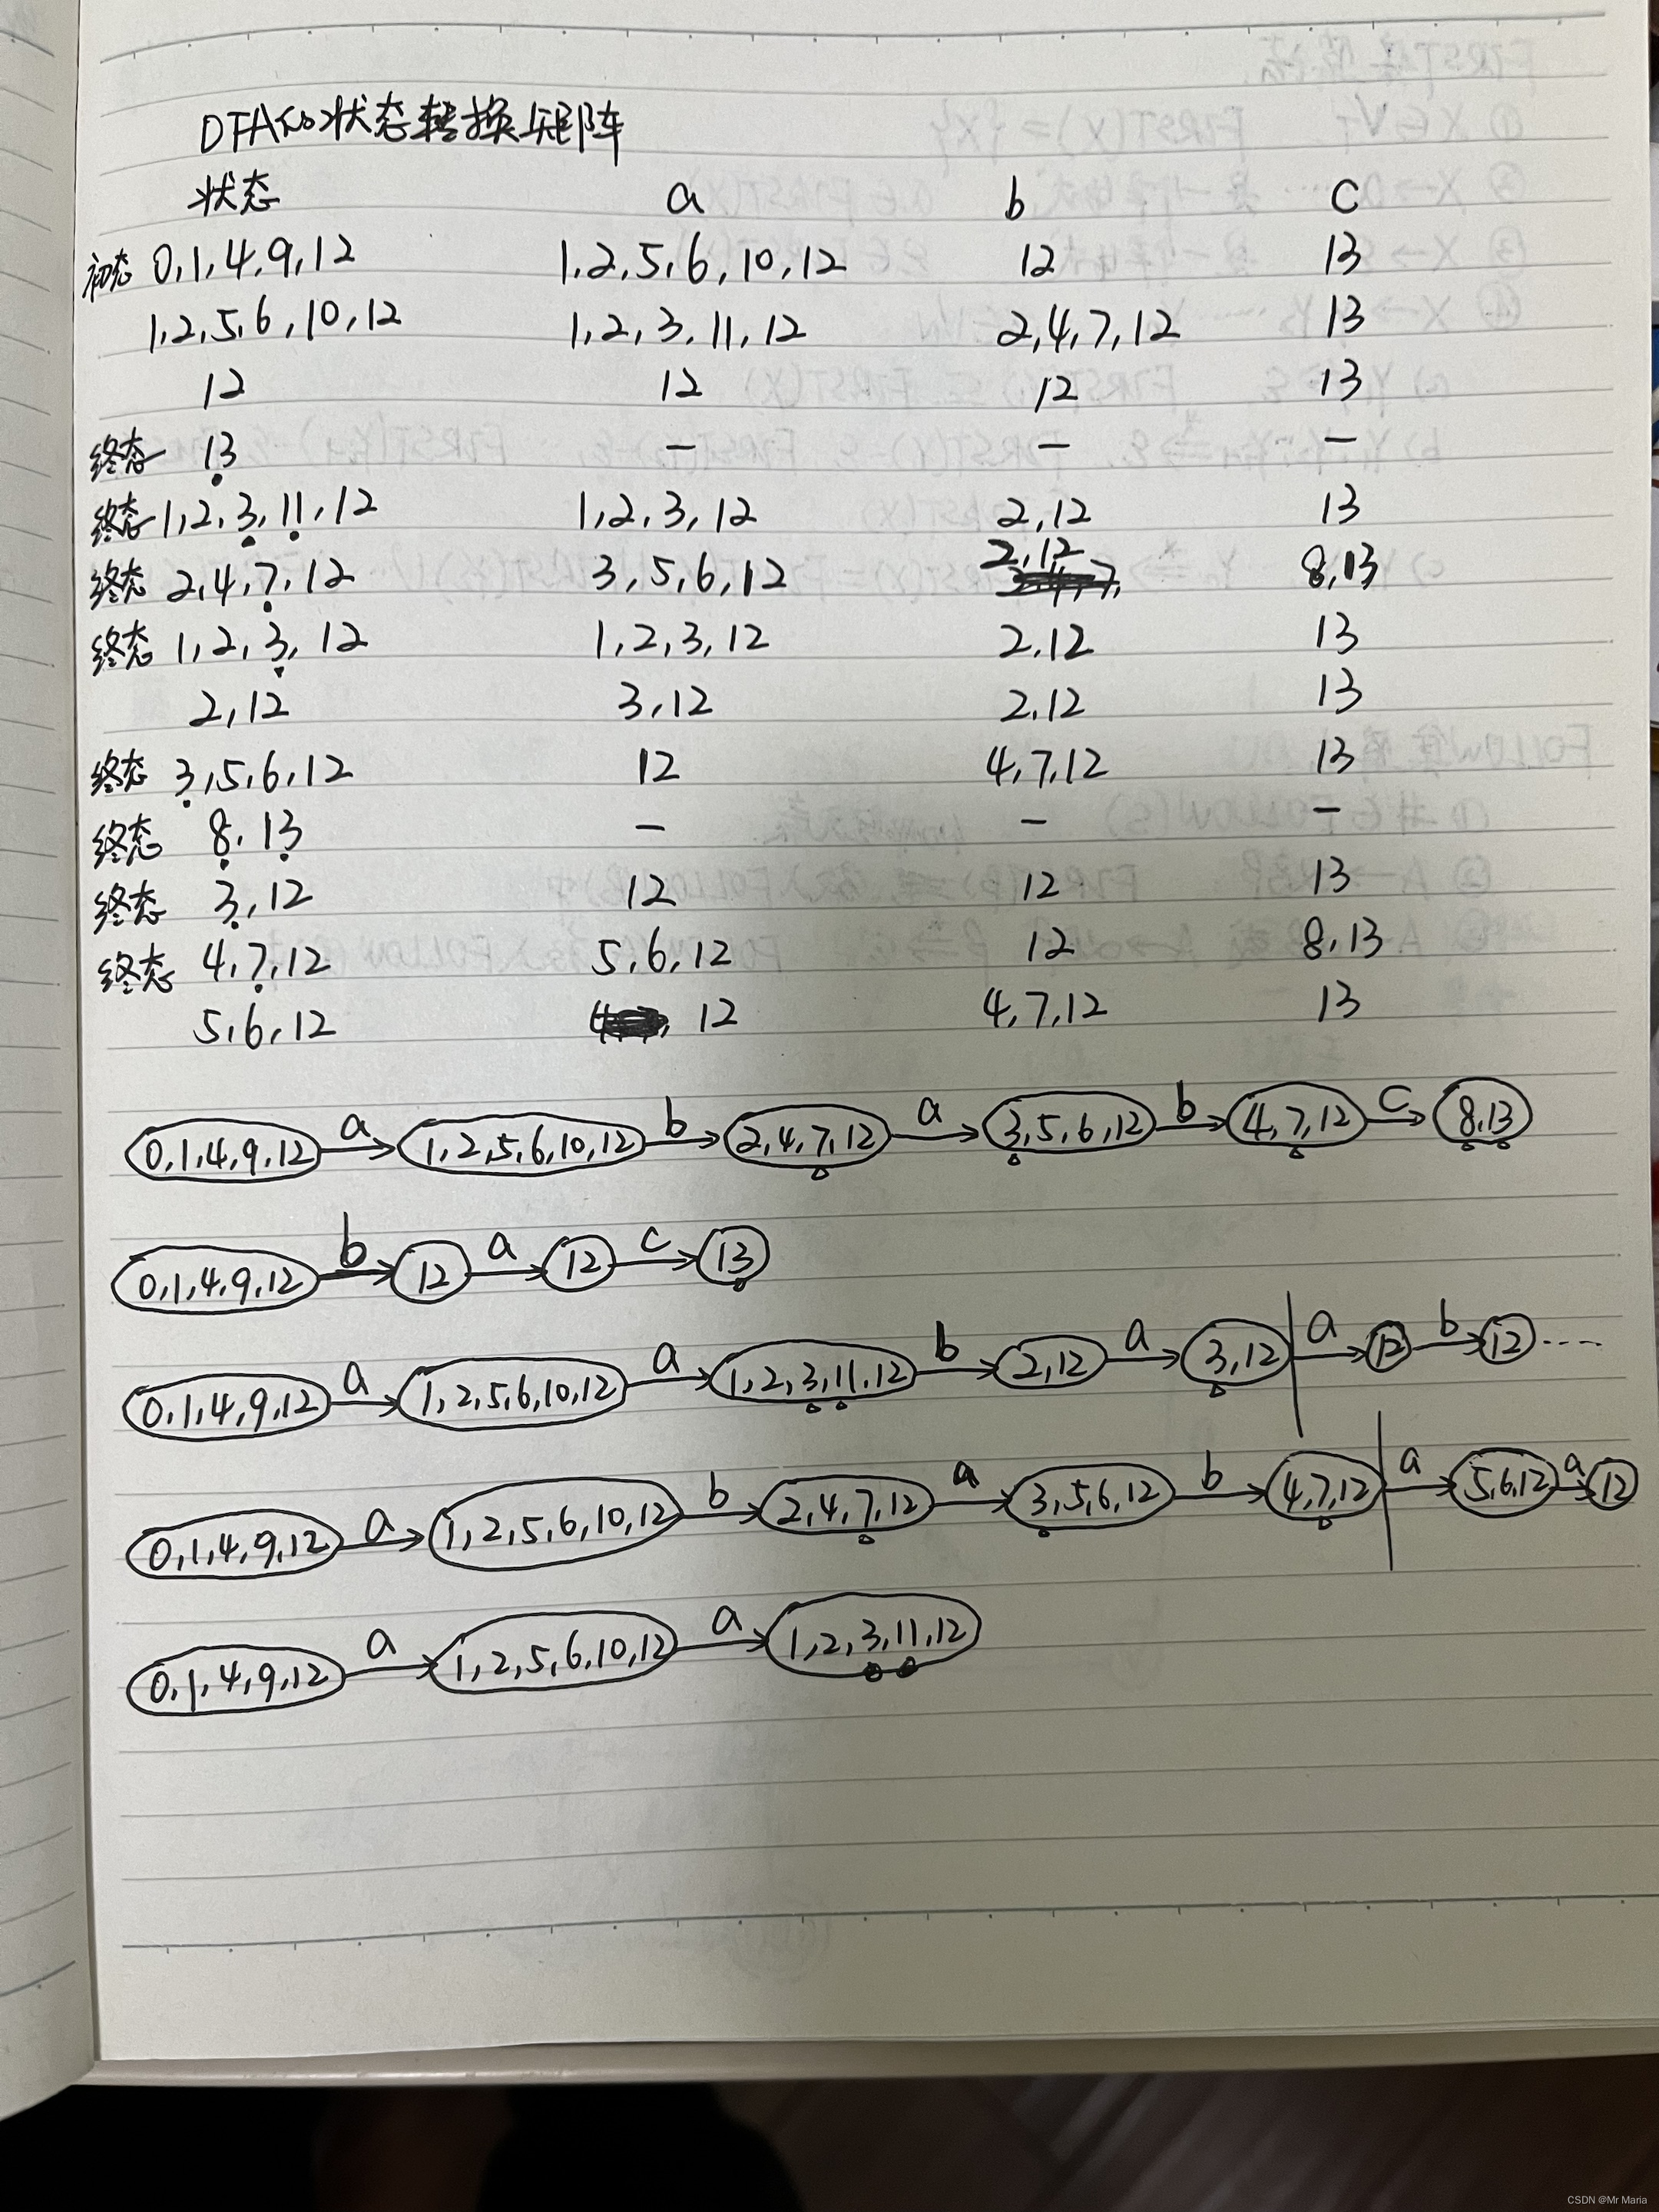 DFA的状态转换矩阵
状态 a b c
初态 0,1,4,9,12 1,2,5,6,10,12 12 13
1,2,5,6,10,12 1,2,3,11,12 2,4,7,12 13
12 12 12 13
终态 13 — — —
终态 1,2,3,11,12 1,2,3,12 2,12 13
终态 2,4,7,12 3,5,6,12 2,12 8,13
终态 1,2,3,12 1,2,3,12 2,12 13
2,12 3,12 2,12 13
终态 3,5,6,12 12 4,7,12 13
终态 8,13 — — —
终态 3,12 12 12 13
终态 4,7,12 5,6,12 12 8,13
5,6,12 12 4,7,12 13
0,1,4,9,12 a 1,2,5,6,10,12 b 2,4,7,12 a 3,5,6,12 b 4,7,12 c 8,13
0,1,4,9,12 b 12 a 12 c 13
0,1,4,9,12 a 1,2,5,6,10,12 a 1,2,3,11,12 b 2,12 a 3,12 a 12 b 12 ....
0,1,4,9,12 a 1,2,5,6,10,12 b 2,4,7,12 a 3,5,6,12 b 4,7,12 a 5,6,12 a 12
0,1,4,9,12 a 1,2,5,6,10,12 a 1,2,3,11,12
CSDN @Mr Maria